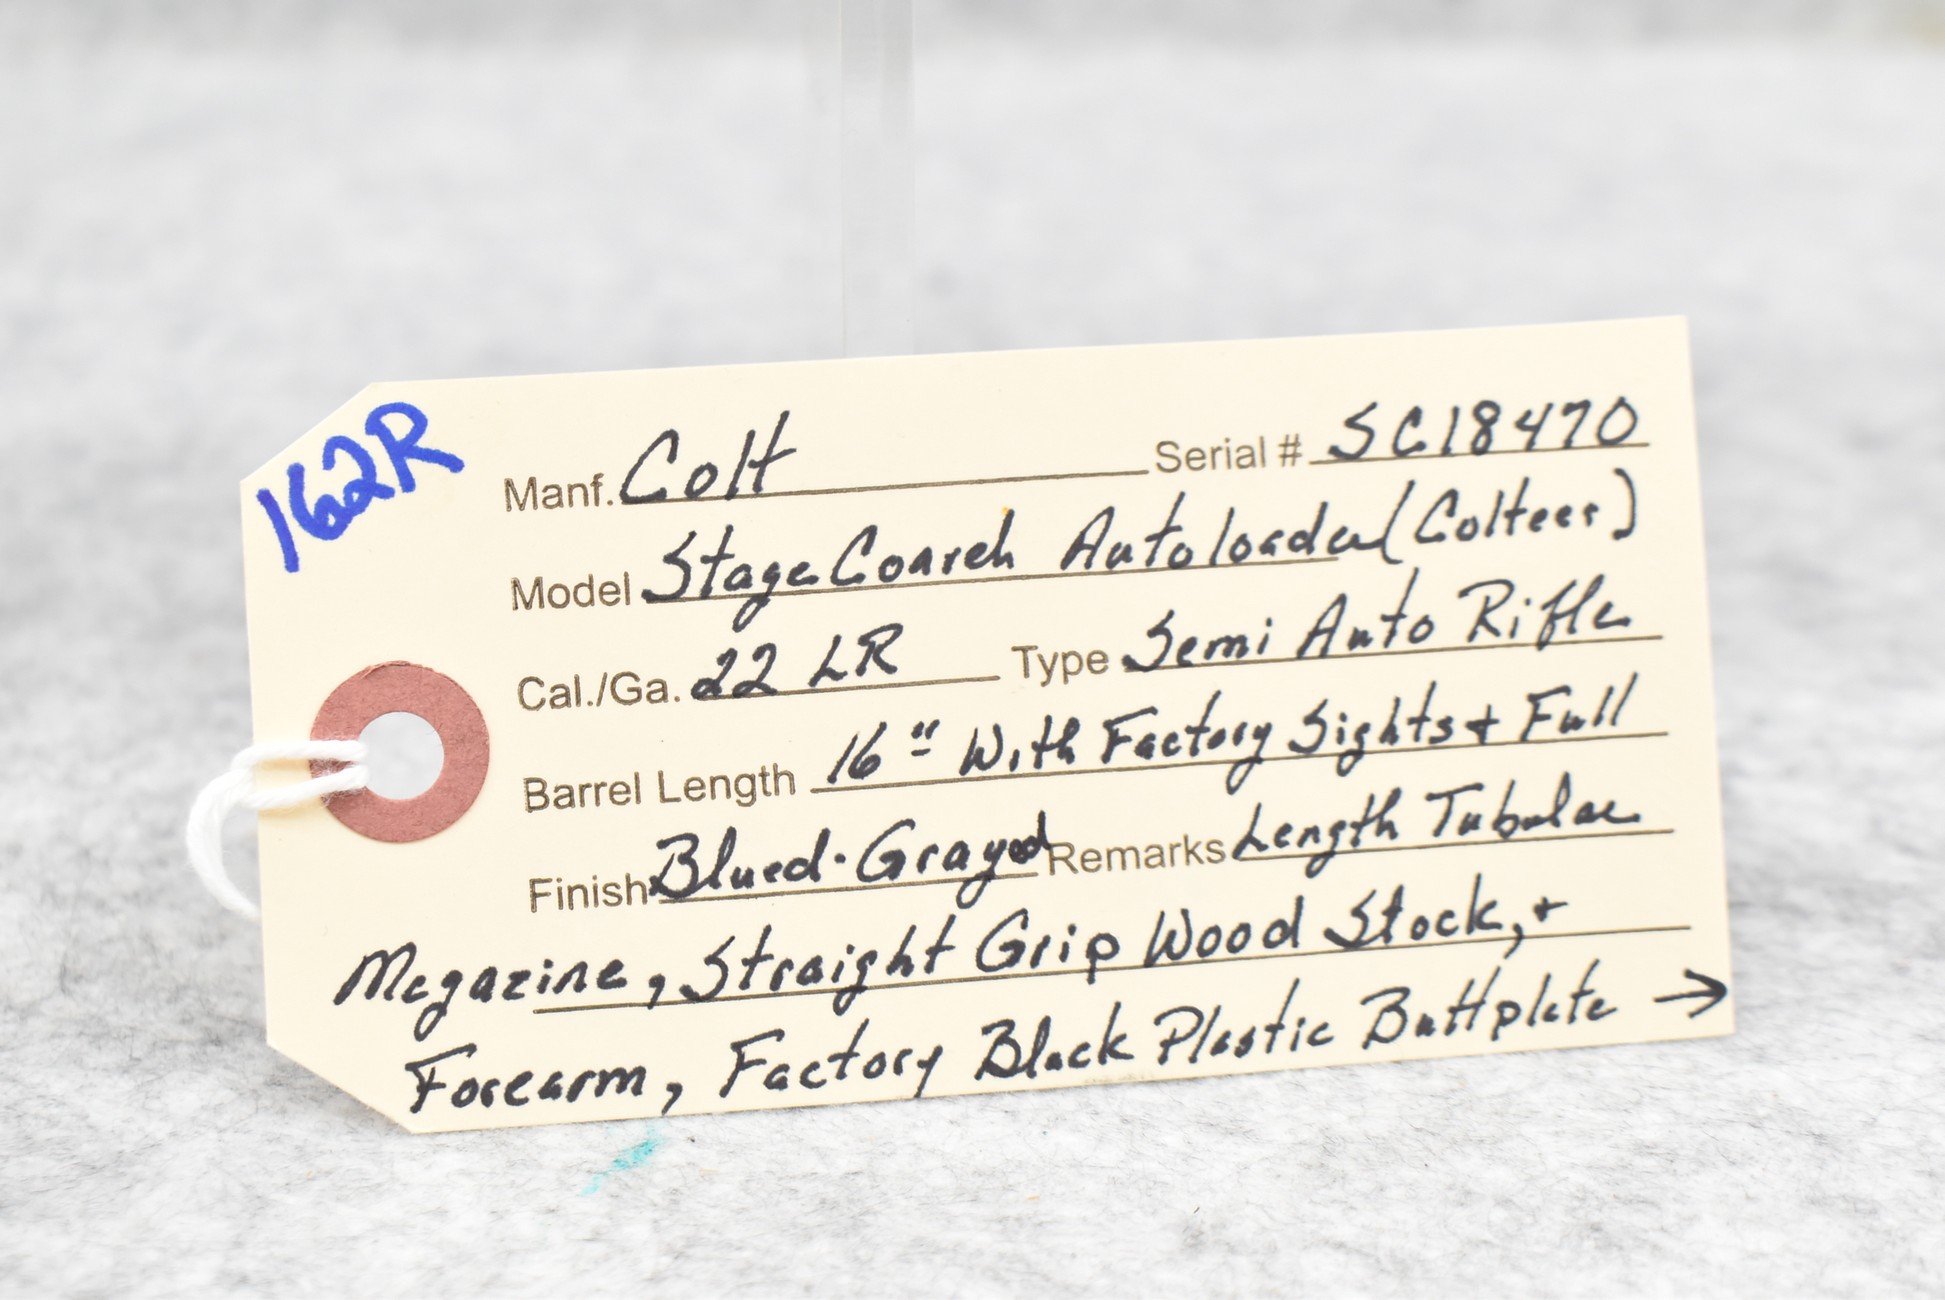 162R
Manf. Colt Serial # SC18470
Model StageCoarch Autoloader (Colteer)
Cal./Ga. 22 LR Type Semi Auto Rifle
Barrel Length 16" With Factory Sights + Full
Finish Blued-Grayed Remarks Length Tubular
Magazine, Straight Grip Wood Stock, +
Forearm, Factory Black Plastic Buttplate →